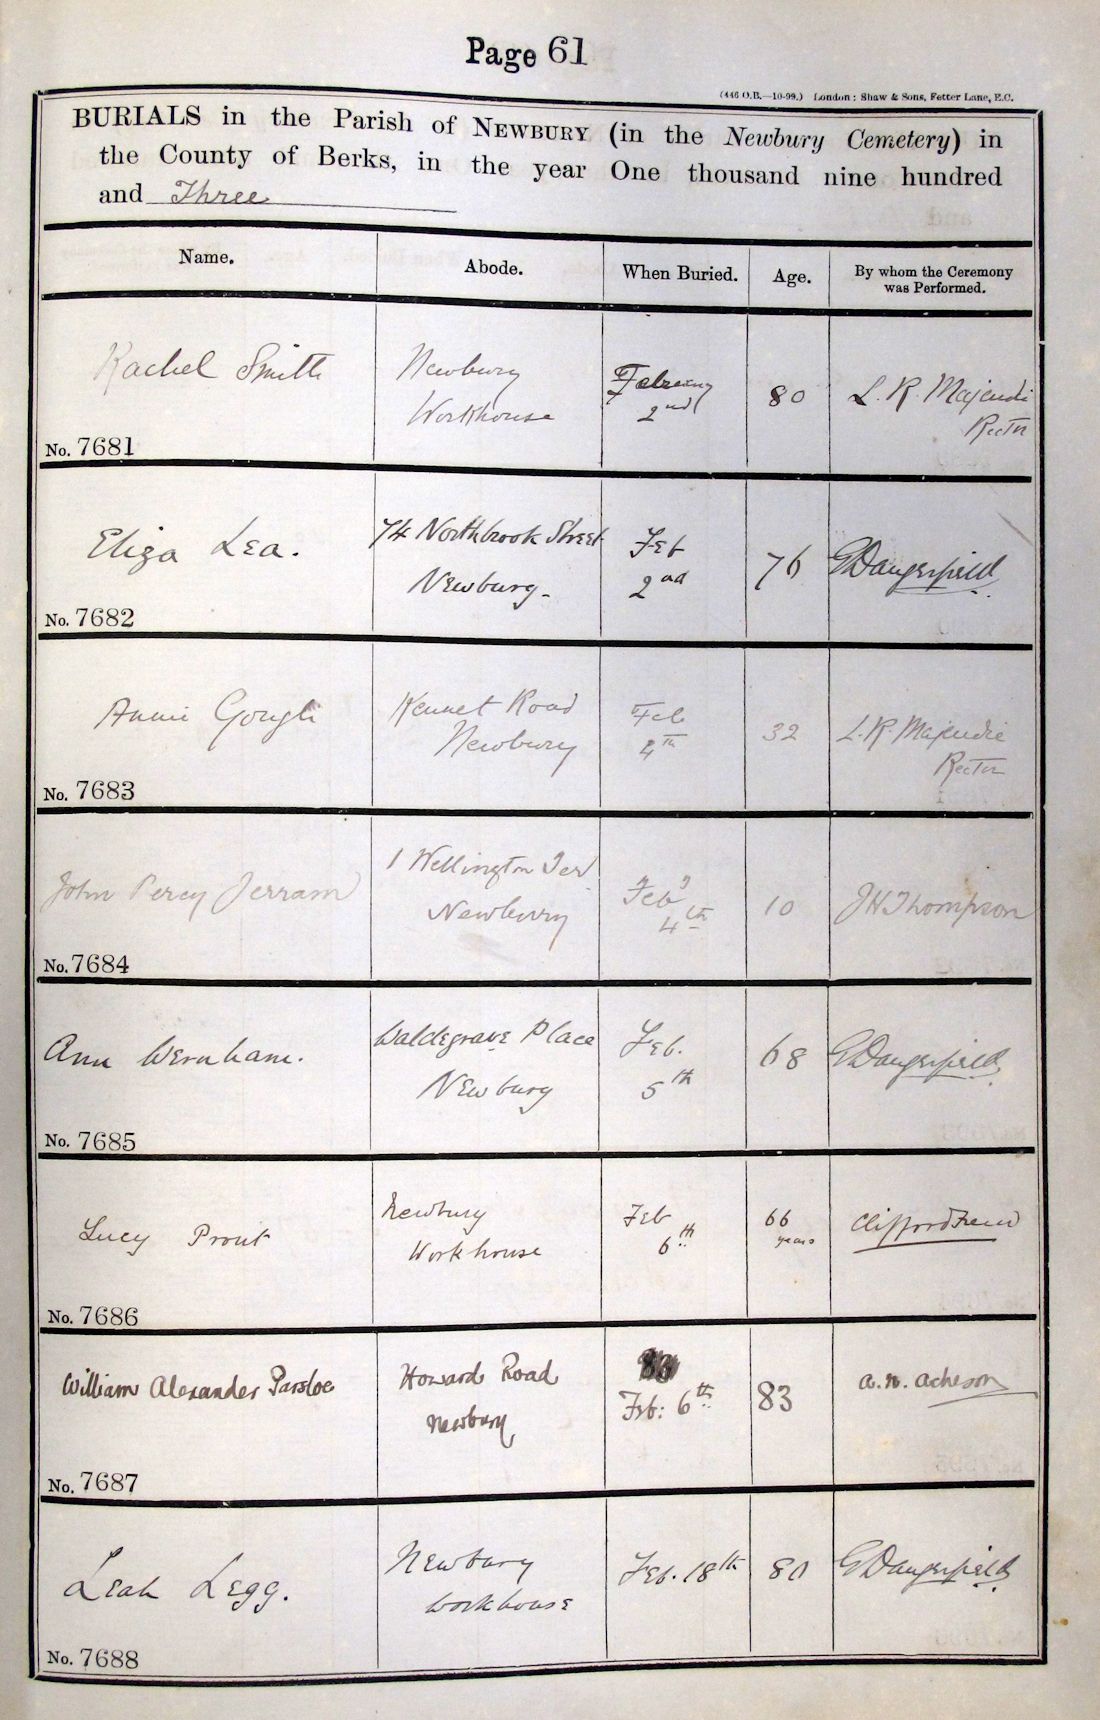 Page 61
(446 O.B.—10-99.) London: Shaw & Sons, Fetter Lane, E.C.
BURIALS in the Parish of NEWBURY (in the Newbury Cemetery) in
the County of Berks, in the year One thousand nine hundred
and Three
Name.
Abode.
When Buried.
Age.
By whom the Ceremony
was Performed.
Rachel Smith
Newbury
Workhouse
February
2nd
80
L. R. Majendie
Rector
No. 7681
Eliza Lea.
74 Northbrook Street
Newbury.
Feb
2nd
76
G Dangerfield
No. 7682
Annie Gough
Kennet Road
Newbury
Feb
4th
32
L. R. Majendie
Rector
No. 7683
John Percy Jerram
1 Wellington Ter
Newbury
Feby
4th
10
JH Thompson
No. 7684
Ann Wernham.
Waldegrave Place
Newbury
Feb.
5th
68
G Dangerfield
No. 7685
Lucy Prout
Newbury
Workhouse
Feb
6th
66
years
Clifford
No. 7686
William Alexander Parsloe
Howard Road
Newbury
Feb: 6th
83
a. n. acheson
No. 7687
Leah Legg.
Newbury
workhouse
Feb. 18th
80
G Dangerfield
No. 7688